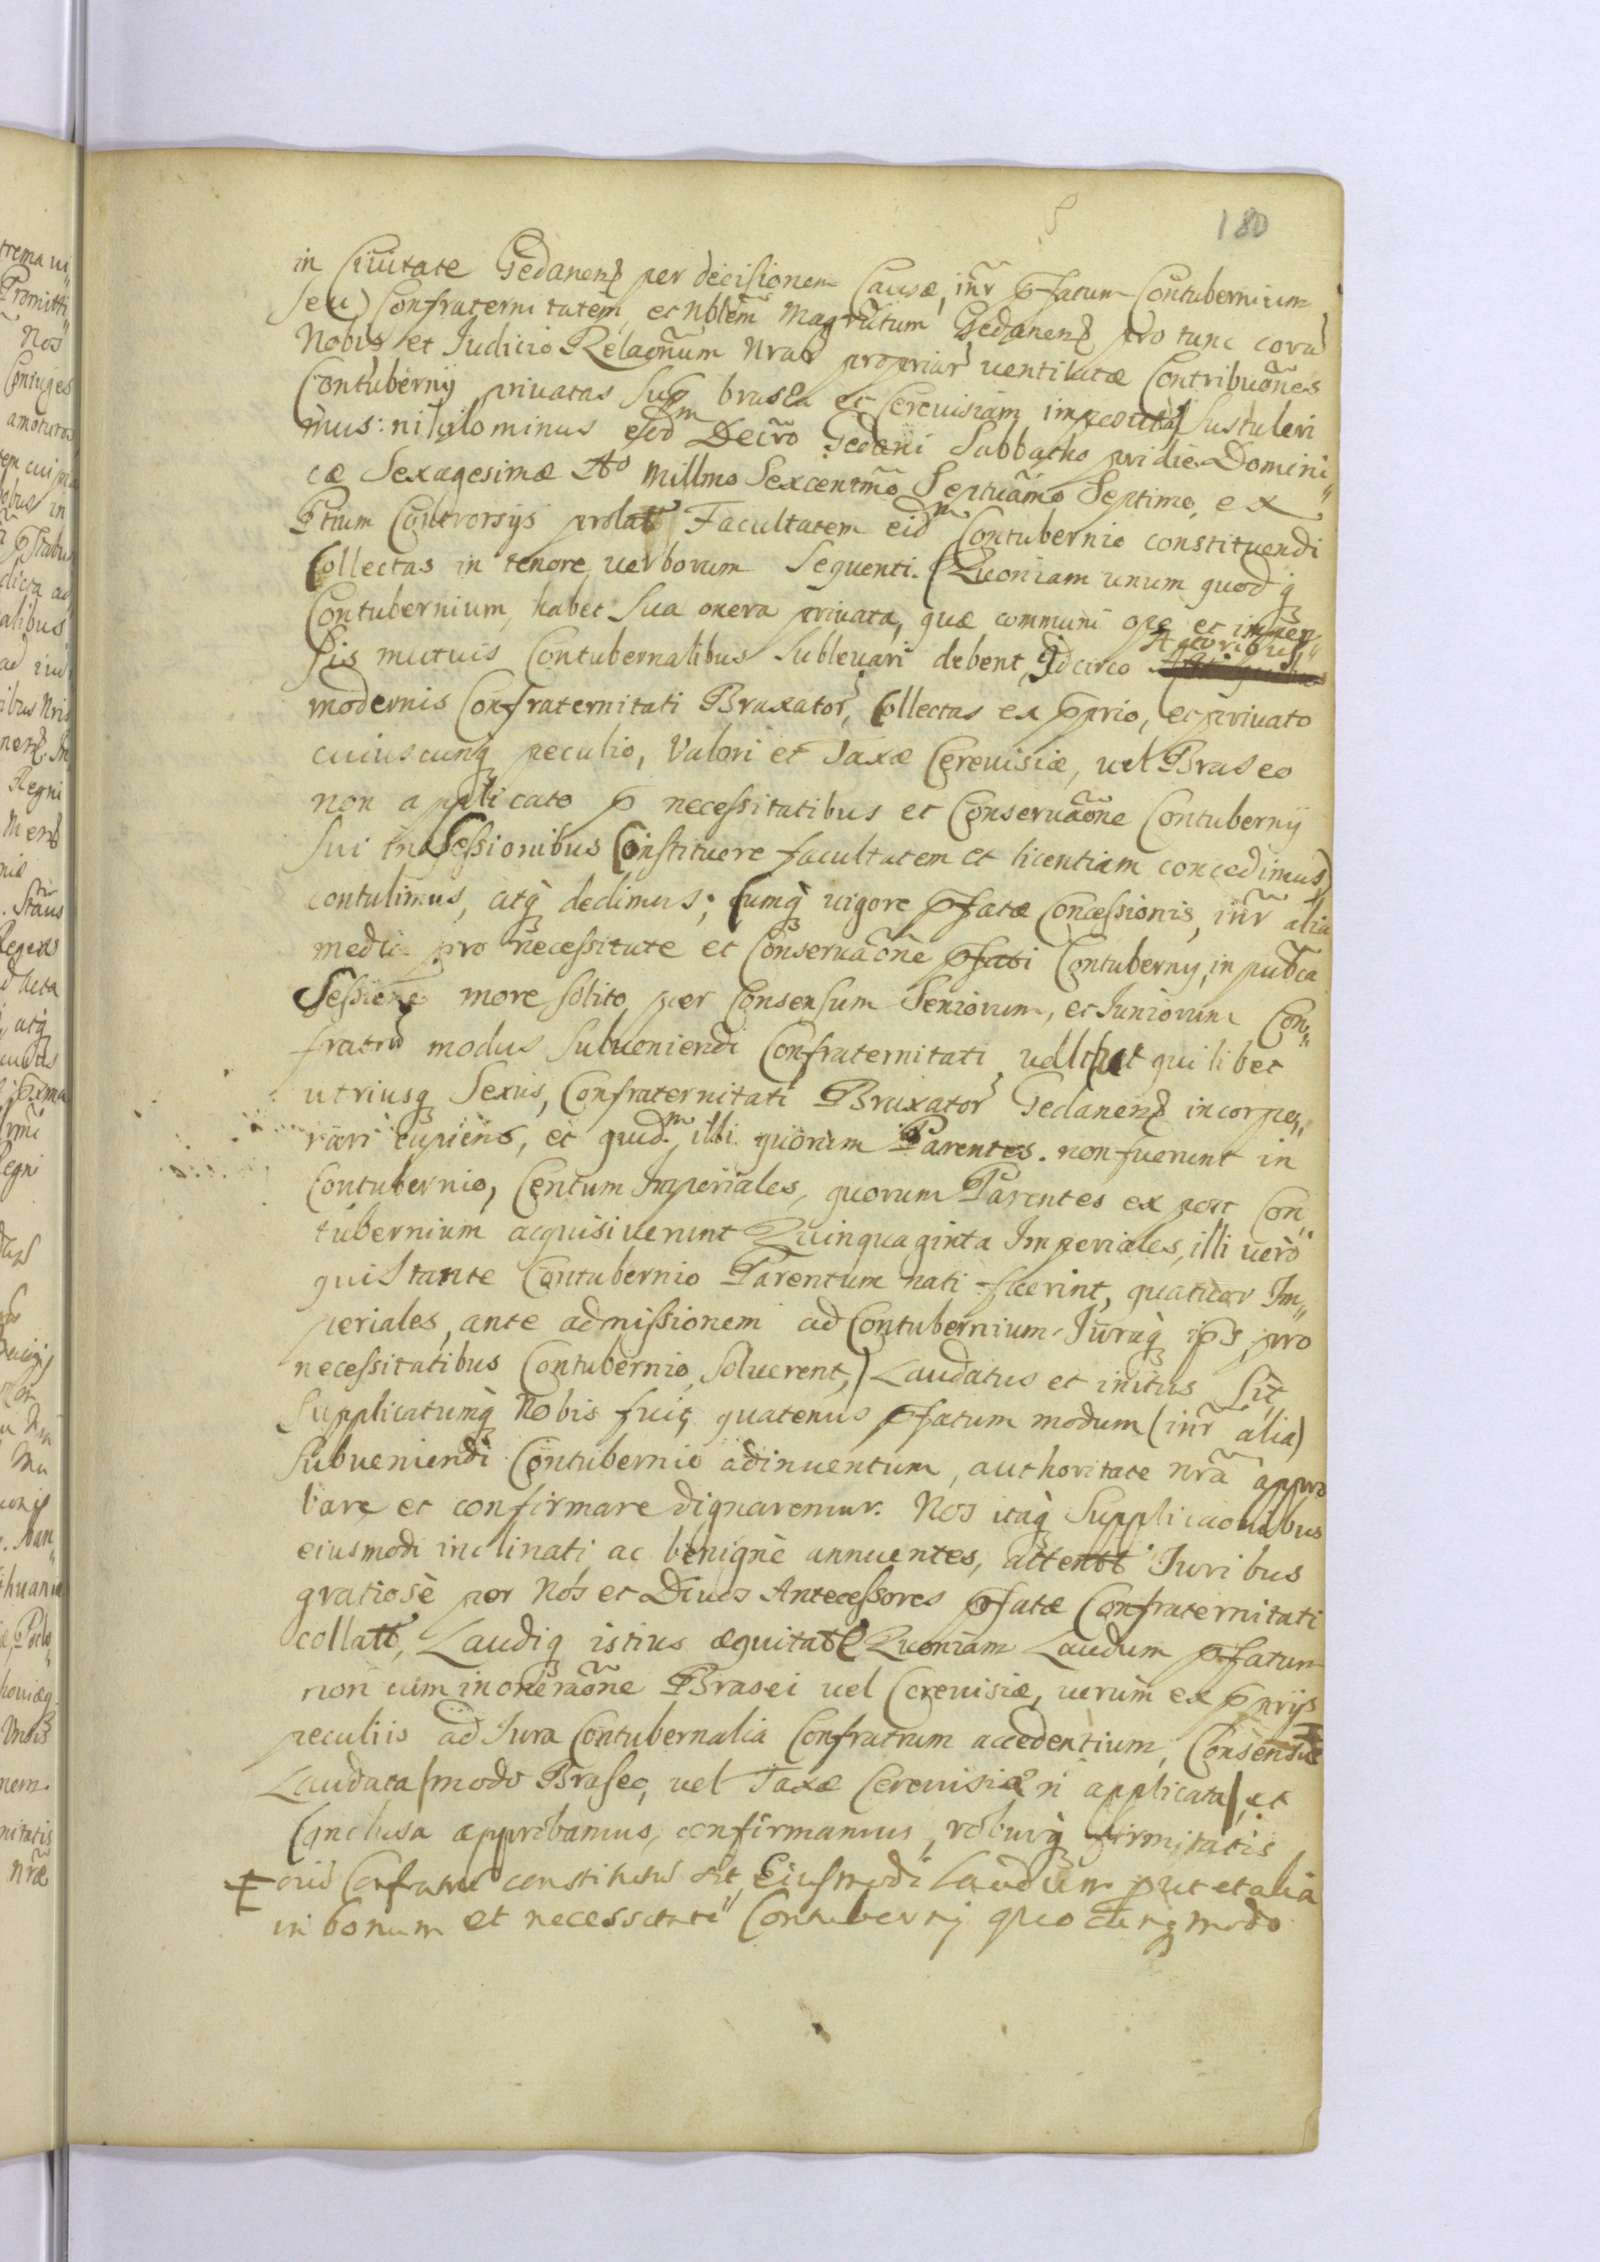 180
in Ciuitate Gedanen per decisionem Causæ, inr̃ pfatum Contubernium
seu Confraternitatem, et Nblem̃ Magr̃atum Gedanen pro tunc corã
Nobis et Iudicio Relaoñum Nrar propriar uentilatæ Contribuõnes
Contubernÿ priuatas sup brasea et Cereuisiam impositas sustuleri
mus: nihilominus eod̃m Decr̃o Gedani Sabbatho pridie Domini„
cæ Sexagesimæ Aͦ Millmo Sexcentm̃o Septuam̃o Septimo, ex
Ptium Controrsÿs prolato Facultatem eidm Contubernio constituendi
Collectas in tenore uerborum sequenti. Quoniam unum quodq
Contubernium, habet sua onera priuata, quæ communi ope et impen„
sis mutuis Contubernalibus subleuari debent, Idcirco Actoribus
modernis Confraternitati Braxator, Collectas ex pprio, et priuato
cuiuscunq peculio, Valori et Taxæ Cereuisiæ, uel Braseo
non applicato p necessitatibus et Conseruaõne Contubernÿ
sui in Sessionibus Constituere facultatem et licentiam concedimus
contulimus, atq̀ dedimus; Cumq̀ uigore pfatæ Concessionis, inr̃ alia
media pro necessitate et Conseruaõne pfati Contubernÿ, in publca
Sessione more solito per Consensum Seniorum, et Iuniorum Con„
fratrũ modus subueniendi Confraternitati, uellicet quilibet
utriusq Sexus, Confraternitati Braxator Gedanen incorpo„
rari cupiens, et quidm illi quorum Parentes non fuerunt in
Contubernio, Centum Imperiales, quorum Parentes ex post Con„
tubernium acquisiuerunt Quinquaginta Imperiales, illi uerò
qui stante Contubernio Parentum nati fuerint, quatuor Im„
periales, ante admissionem ad Contubernium Iuraq ips, pro
necessitatibus Contubernio soluerent,) Laudatus et initus sit,
Supplicatumq̀ Nobis fuit, quatenus pfatum modum (inr̃ alia)
subueniendi Contubernio adinuentum, authoritate nrã appro
bare et confirmare dignaremur. Nos itaq̀ Supplicaõnibus
eiusmodi inclinati ac benignè annuentes, attento Iuribus
gratiosè per Nos et Diuos Antecessores pfatæ Confraternitati
collato, Laudiq istius æquitate Quoniam Laudum pfatum
non cum inoneraõne Brasei uel Cereuisiæ, uerum ex pprÿs
peculiis ad Iura Contubernalia Confratrum accedentium, Consensu
Laudata/modo Braseo, uel Taxæ Cereuisiæ ñ applicata/, et
Conclusa approbamus, confirmamus, roburq̀ firmitatis
constitutũ sit, Eiusmodi Laudum put et alia
in bonum et necessitatẽ Contubernÿ quocunq modo